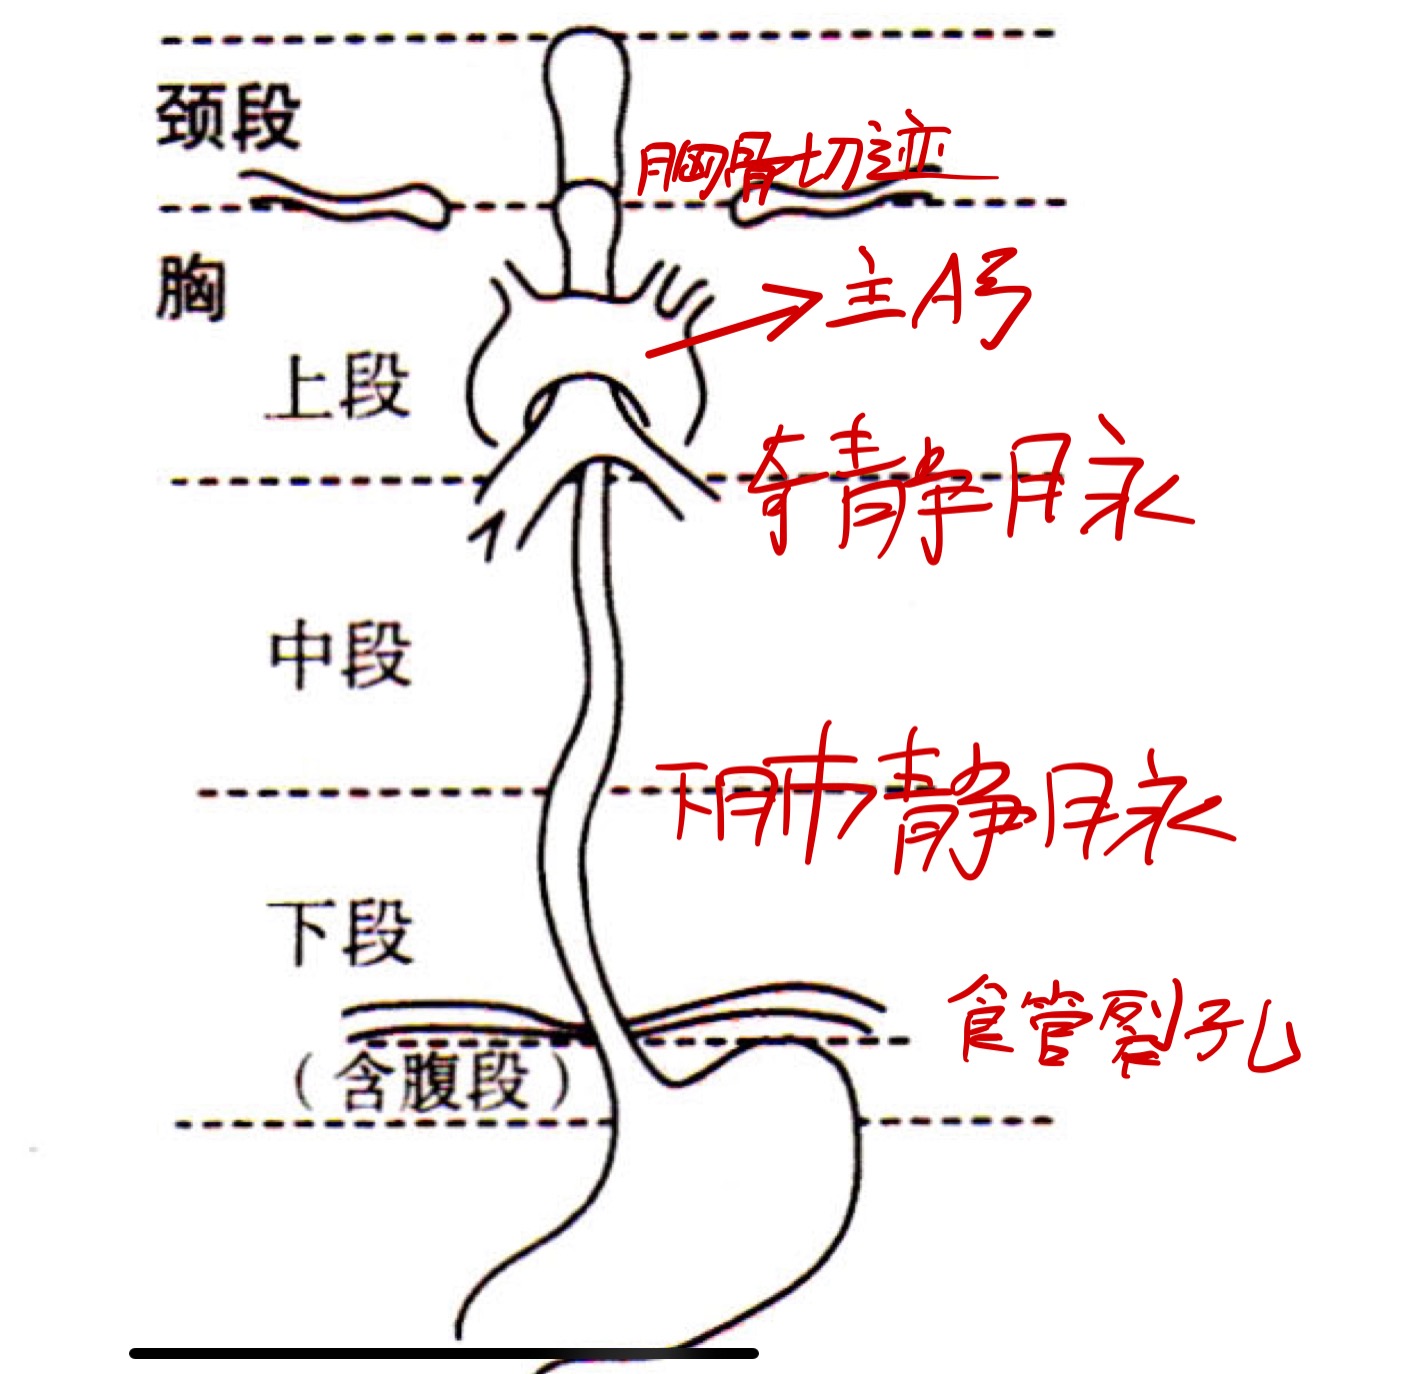 颈段
胸骨切迹
胸
主A弓
上段
奇静脉
中段
下肺静脉
下段
食管裂孔
（含腹段）